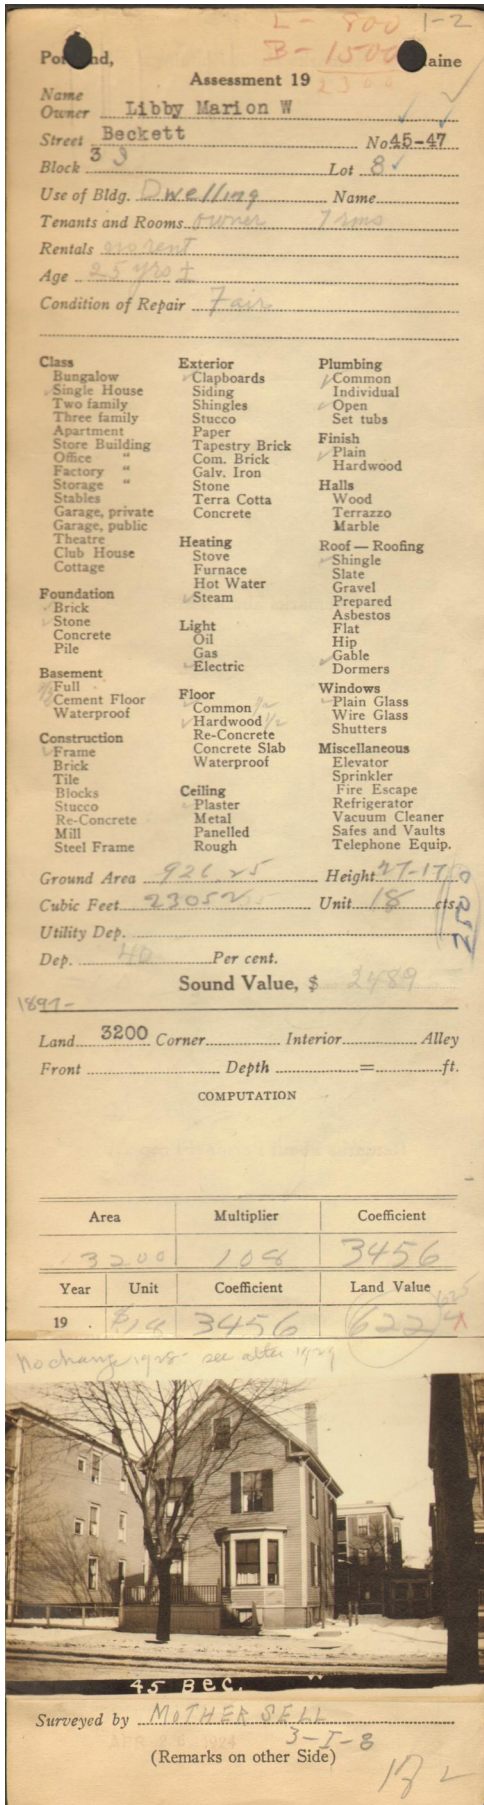 L- 800 1-2
B- 1500
2300
Assessment 19
Name
Owner Libby Marion W
Street Beckett No 45-47
Block 3 J Lot 8
Use of Bldg. Dwelling Name
Tenants and Rooms owner 7 rms
Rentals no rent
Age 25 yrs ±
Condition of Repair Fair
Class
Bungalow
Single House
Two family
Three family
Apartment
Store Building
Office "
Factory "
Storage "
Stables
Garage, private
Garage, public
Theatre
Club House
Cottage
Foundation
Brick
Stone
Concrete
Pile
Basement
1/2 Full
Cement Floor
Waterproof
Construction
Frame
Brick
Tile
Blocks
Stucco
Re-Concrete
Mill
Steel Frame
Exterior
Clapboards
Siding
Shingles
Stucco
Paper
Tapestry Brick
Com. Brick
Galv. Iron
Stone
Terra Cotta
Concrete
Heating
Stove
Furnace
Hot Water
Steam
Light
Oil
Gas
Electric
Floor
Common 1/2
Hardwood 1/2
Re-Concrete
Concrete Slab
Waterproof
Ceiling
Plaster
Metal
Panelled
Rough
Plumbing
Common
Individual
Open
Set tubs
Finish
Plain
Hardwood
Halls
Wood
Terrazzo
Marble
Roof — Roofing
Shingle
Slate
Gravel
Prepared
Asbestos
Flat
Hip
Gable
Dormers
Windows
Plain Glass
Wire Glass
Shutters
Miscellaneous
Elevator
Sprinkler
Fire Escape
Refrigerator
Vacuum Cleaner
Safes and Vaults
Telephone Equip.
Ground Area 926.25 Height 27-17
Cubic Feet 23052 Unit 18 cts.
2500
Utility Dep.
Dep. 40 Per cent.
Sound Value, $ 2489
1897-
Land 3200 Corner Interior Alley
Front Depth = ft.
COMPUTATION
Area Multiplier Coefficient
3200 108 3456
Year Unit Coefficient Land Value
19 . $.18 3456 622 625
No change 1928- see after 1929
45 BEC.
Surveyed by MOTHERSELL
3-I-8
(Remarks on other Side)